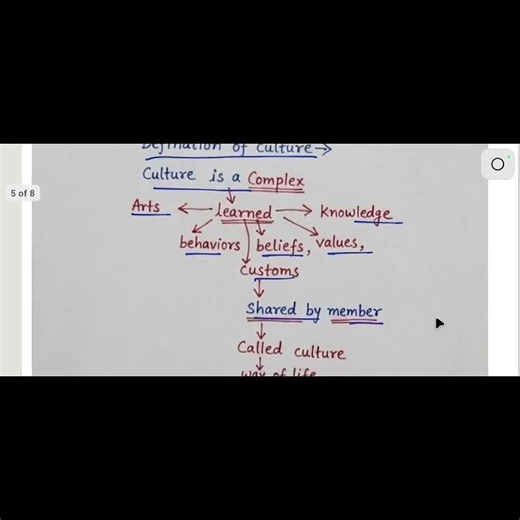 Definition of Culture→
Culture is a Complex
5 of 8
Arts ← learned → Knowledge
behaviors beliefs, values,
Customs
Shared by member
Called culture
way of life